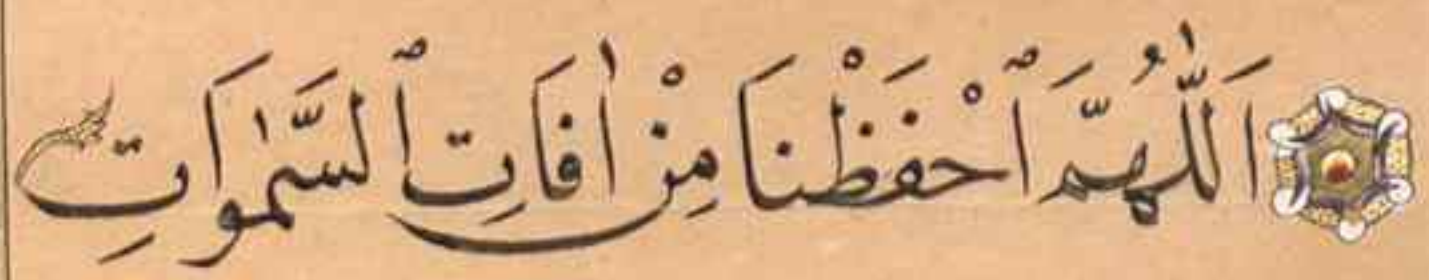 اَللّٰهُمَّ ٱحْفَظْنَا مِنْ اٰفَاتِ ٱلسَّمٰوَاتِ